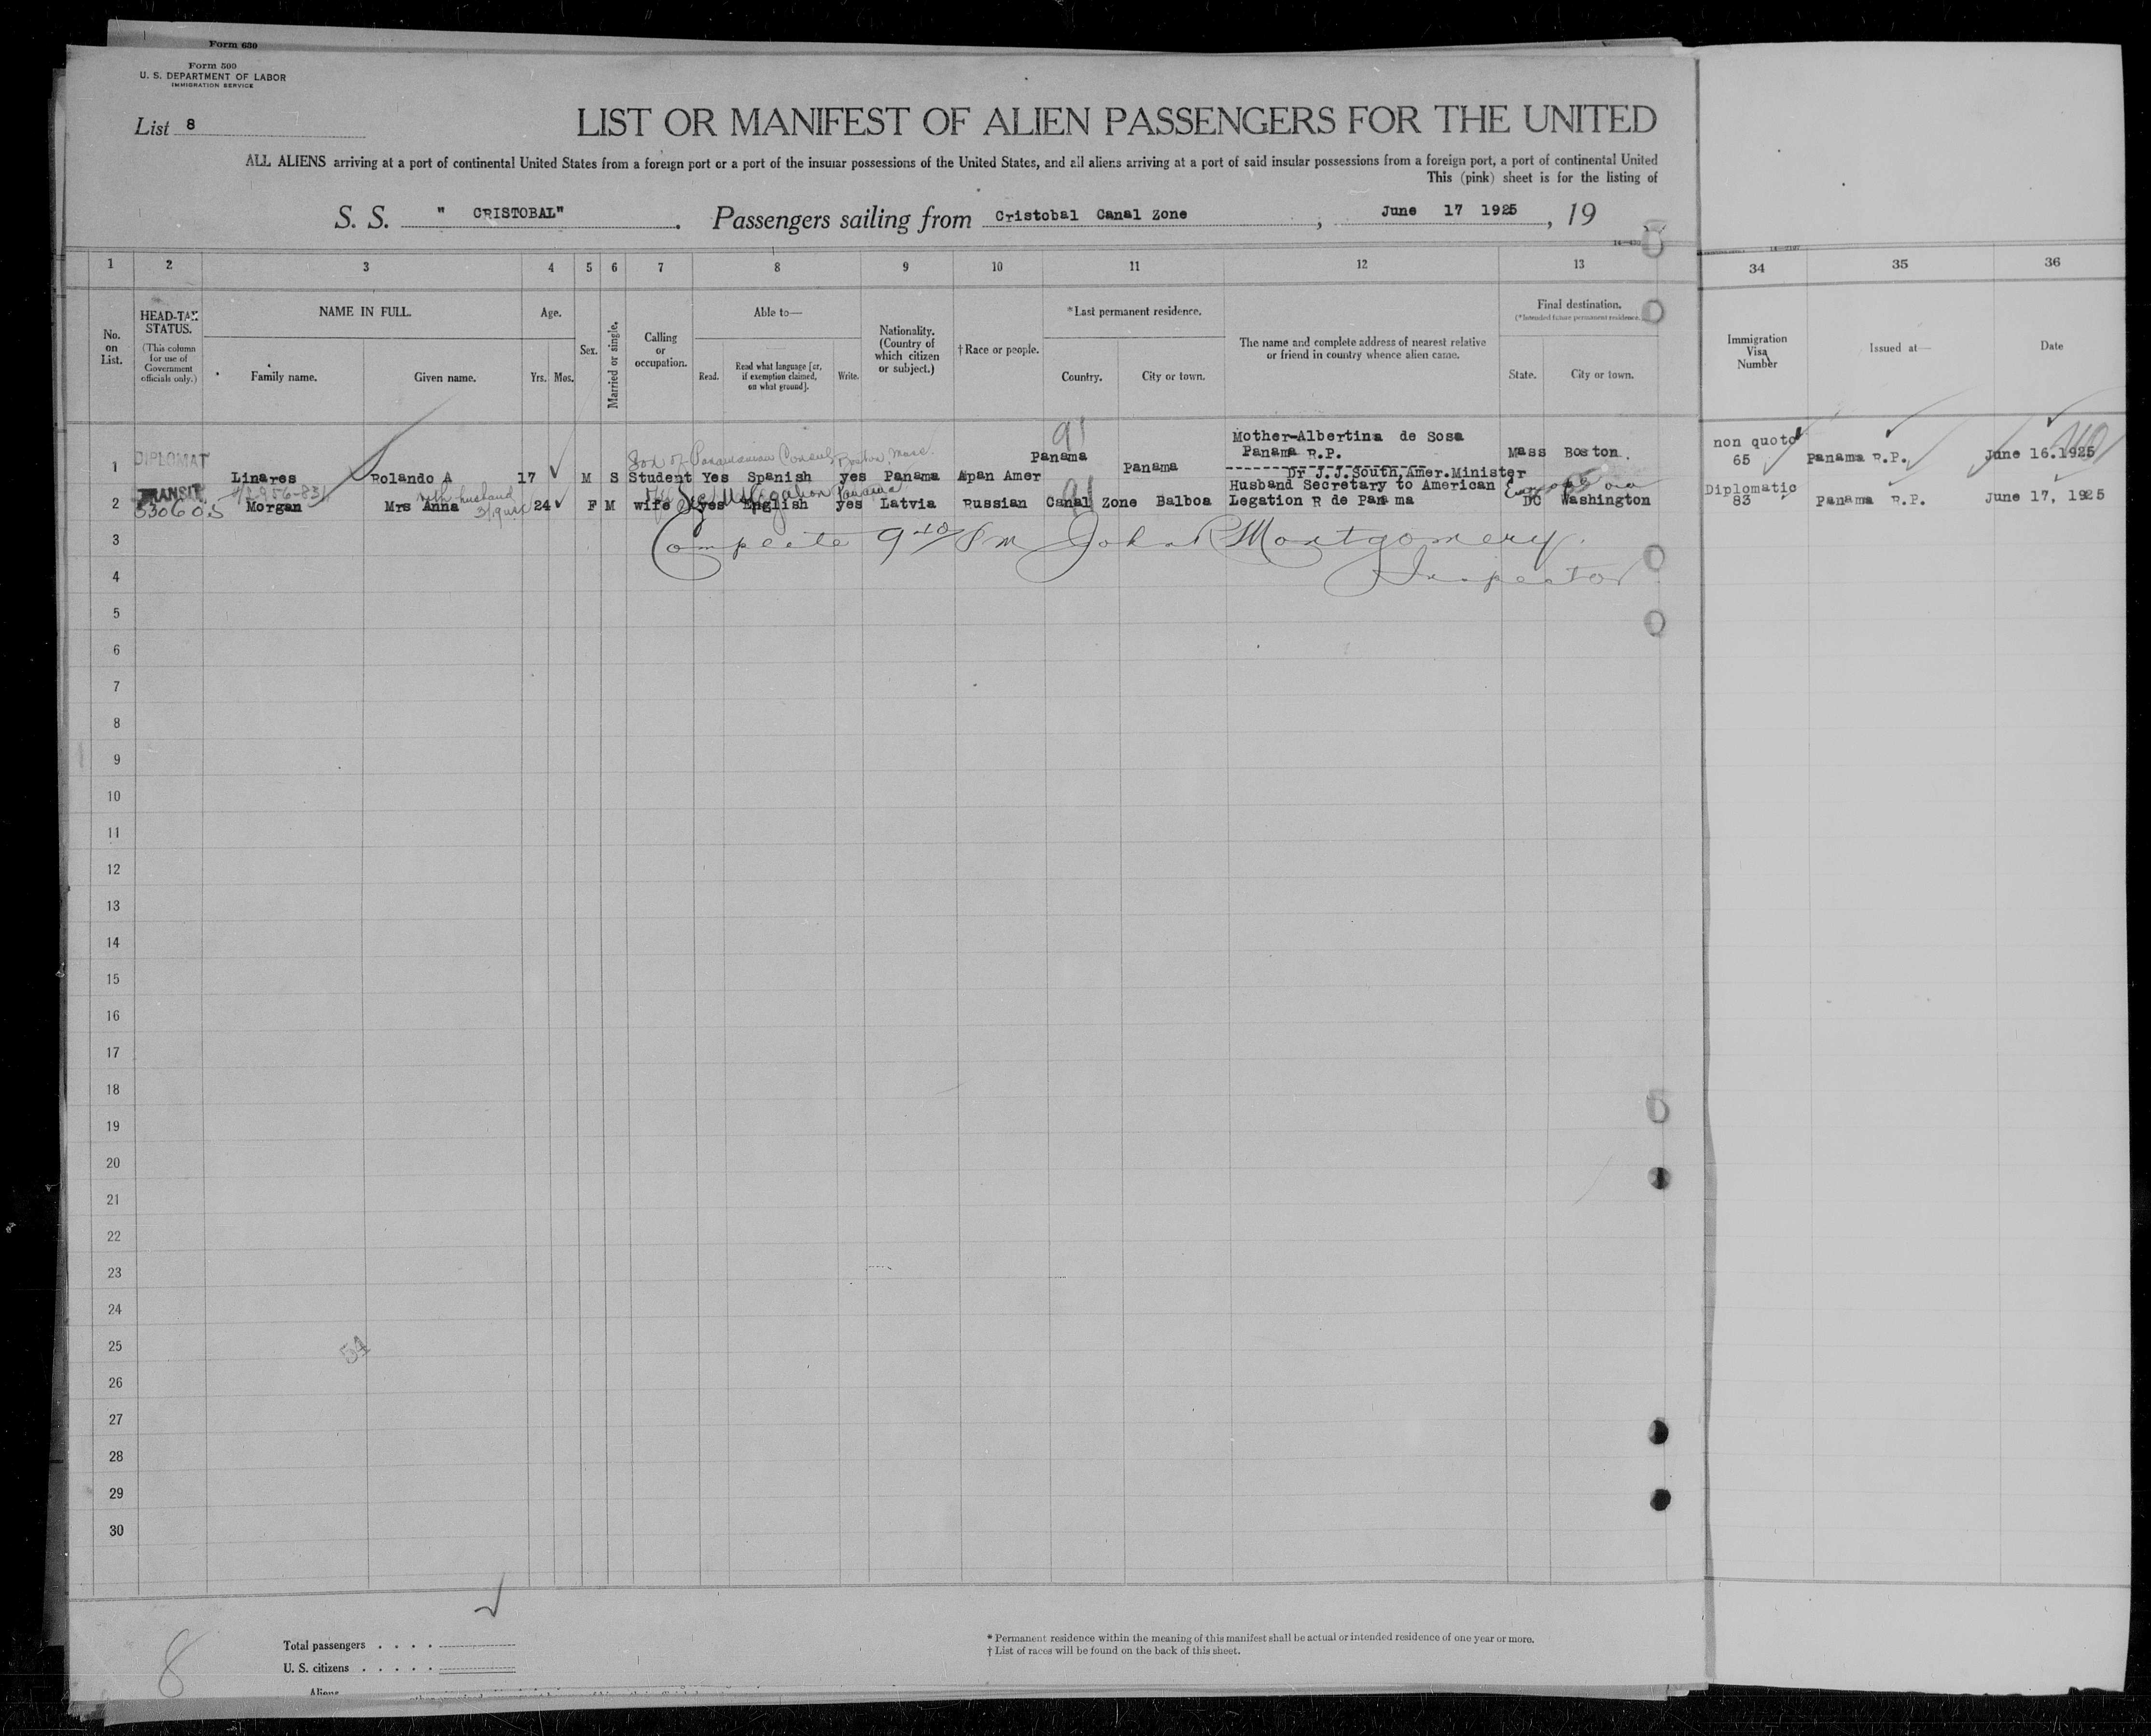 Form 630
Form 500
U. S. DEPARTMENT OF LABOR
IMMIGRATION SERVICE
List 8
LIST OR MANIFEST OF ALIEN PASSENGERS FOR THE UNITED
ALL ALIENS arriving at a port of continental United States from a foreign port or a port of the insular possessions of the United States, and all aliens arriving at a port of said insular possessions from a foreign port, a port of continental United
This (pink) sheet is for the listing of
S. S. " CRISTOBAL" . Passengers sailing from Cristobal Canal Zone , June 17 1925 , 19
1 2 3 4 5 6 7 8 9 10 11 12 13 34 35 36
No. on List.
HEAD-TAX STATUS.
(This column for use of Government officials only.)
NAME IN FULL.
Family name. Given name.
Age.
Yrs. Mos.
Sex.
Married or single.
Calling or occupation.
Able to—
Read. Read what language [or, if exemption claimed, on what ground]. Write.
Nationality. (Country of which citizen or subject.)
†Race or people.
*Last permanent residence.
Country. City or town.
The name and complete address of nearest relative or friend in country whence alien came.
Final destination.
(*Intended future permanent residence.)
State. City or town.
Immigration Visa Number
Issued at—
Date
91
Son of Panamanian Consul, Boston, Mass.
Mother-Albertina de Sosa
Panama R.P.
1 DIPLOMAT Linares Rolando A 17 M S Student Yes Spanish yes Panama Span Amer Panama Panama Mass Boston. non quota 65 Panama R.P. June 16.1925
Dr J.J.South,Amer.Minister
Husband Secretary to American
with husband
Legation Panama
2 TRANSIT Morgan Mrs Anna 24 F M wife yes English yes Latvia Russian Canal Zone Balboa Legation R de Panama DC Washington Diplomatic 83 Panama R.P. June 17, 1925
3 Complete 9 PM John R Montgomery.
4 Inspector
5
6
7
8
9
10
11
12
13
14
15
16
17
18
19
20
21
22
23
24
25
54
26
27
28
29
30
8
Total passengers . . . .
U. S. citizens . . . . .
Aliens
* Permanent residence within the meaning of this manifest shall be actual or intended residence of one year or more.
† List of races will be found on the back of this sheet.